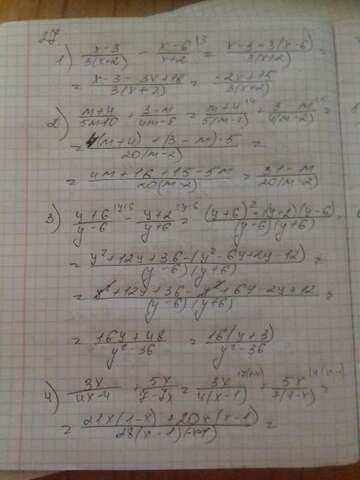 27.
1) (x-3)/(3(x+2)) - (x-6)/(x+2) \3 = (x-3-3(x-6))/(3(x+2)) =
= (x-3-3x+18)/(3(x+2)) = (-2x+15)/(3(x+2))
2) (m+4)/(5m-10) + (3-m)/(4m-8) = (m+4)/(5(m-2)) \4 + (3-m)/(4(m-2)) \5 =
= (4(m+4)+(3-m)·5)/(20(m-2)) =
= (4m+16+15-5m)/(20(m-2)) = (31-m)/(20(m-2))
3) (y+6)/(y-6) \y+6 - (y+2)/(y+6) \y-6 = ((y+6)²-(y+2)(y-6))/((y-6)(y+6)) =
= (y²+12y+36-(y²-6y+2y-12))/((y-6)(y+6)) =
= (y²+12y+36-y²+6y-2y+12)/((y-6)(y+6)) =
= (16y+48)/(y²-36) = (16(y+3))/(y²-36)
4) 3x/(4x-4) + 5x/(7-7x) = 3x/(4(x-1)) + 5x/(7(1-x)) =
= (21x(1-x)+20x(x-1))/(28(x-1)(1-x)) =